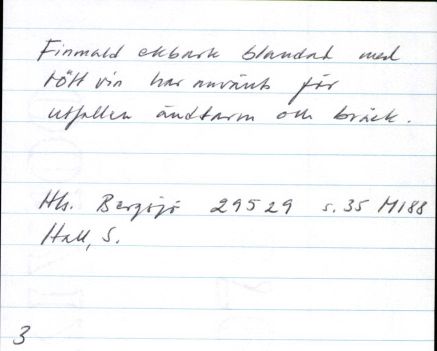 Finmald ekbark blandat med
rött vin har använts för
utfallen ändtarm och bråck.
Hls. Bergsjö 29529 s.35 M188
Hall, S.
3